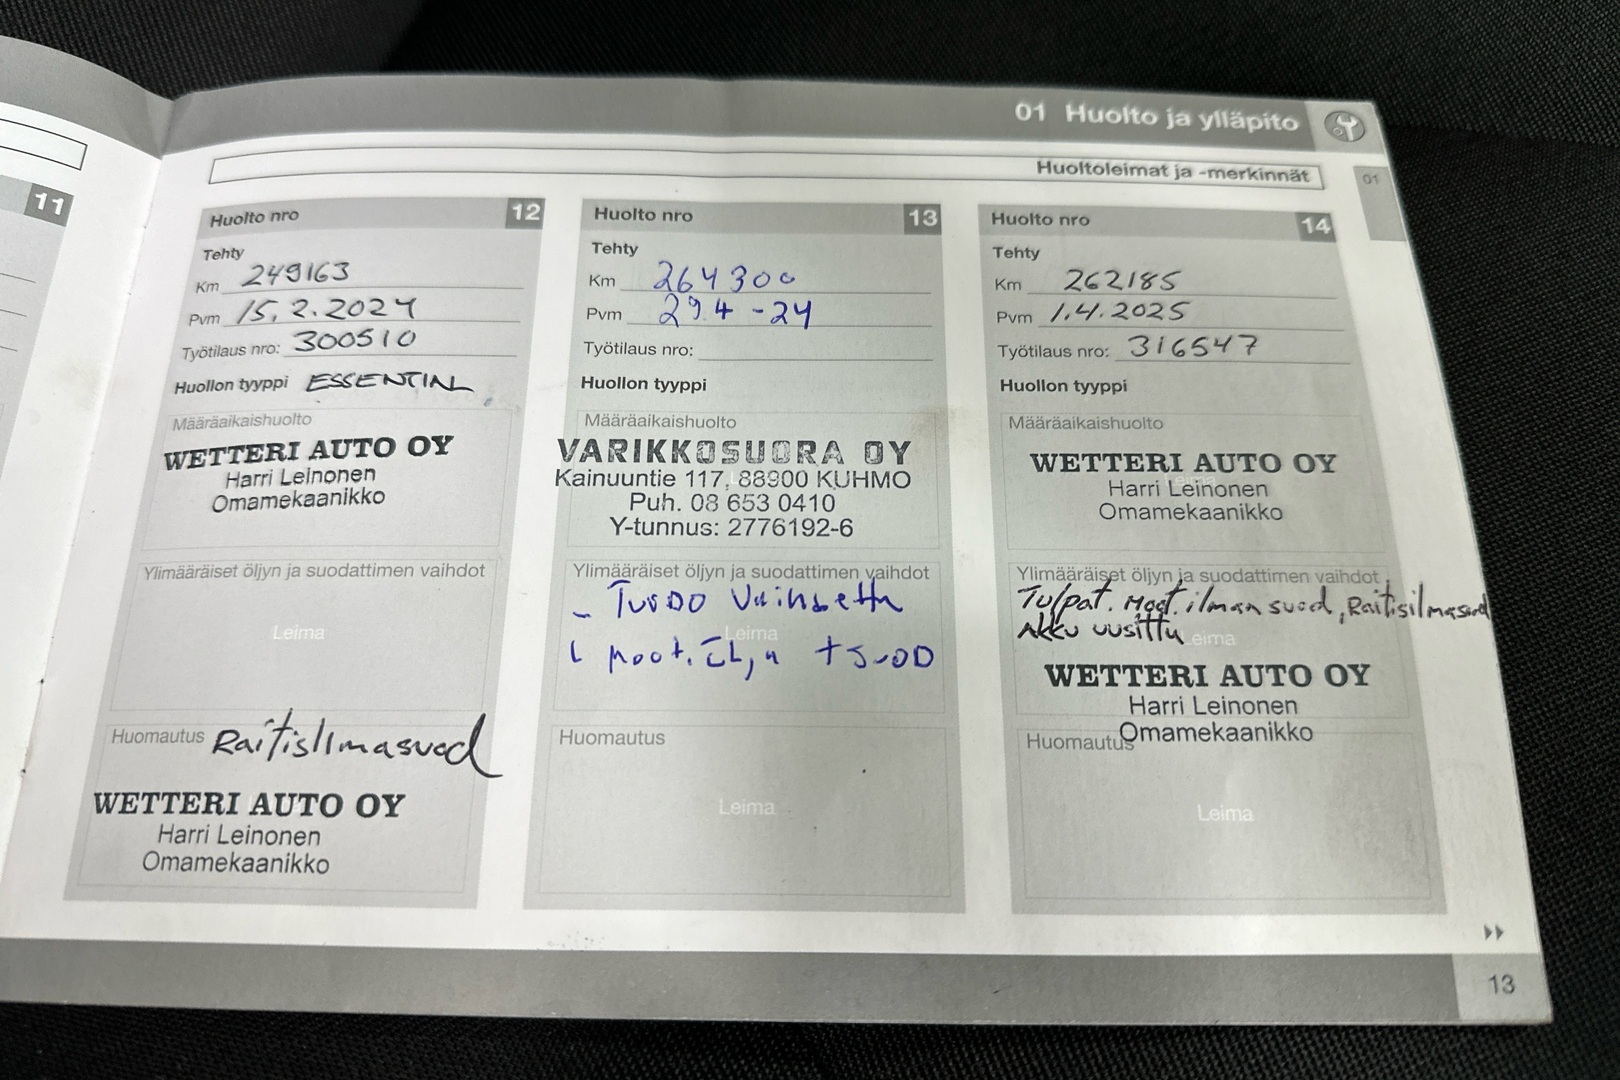 01 Huolto ja ylläpito
Huoltoleimat ja -merkinnät
01
11
Huolto nro 12
Tehty
Km 249163
Pvm 15.2.2024
Työtilaus nro: 300510
Huollon tyyppi ESSENTIAL
Määräaikaishuolto
WETTERI AUTO OY
Harri Leinonen
Omamekaanikko
Ylimääräiset öljyn ja suodattimen vaihdot
Leima
Huomautus Raitisilmasuod
WETTERI AUTO OY
Harri Leinonen
Omamekaanikko
Huolto nro 13
Tehty
Km 264300
Pvm 29.4-24
Työtilaus nro:
Huollon tyyppi
Määräaikaishuolto
VARIKKOSUORA OY
Kainuuntie 117, 88900 KUHMO
Puh. 08 653 0410
Y-tunnus: 2776192-6
Ylimääräiset öljyn ja suodattimen vaihdot
- Turbo vaihdettu
Leima
moot. öljy + suod
Huomautus
Leima
Huolto nro 14
Tehty
Km 262185
Pvm 1.4.2025
Työtilaus nro: 316547
Huollon tyyppi
Määräaikaishuolto
WETTERI AUTO OY
Harri Leinonen
Omamekaanikko
Ylimääräiset öljyn ja suodattimen vaihdot
Tulpat. moot.ilman suod, Raitisilmasuod
Akku uusittu Leima
WETTERI AUTO OY
Harri Leinonen
Omamekaanikko
Huomautus
Leima
13